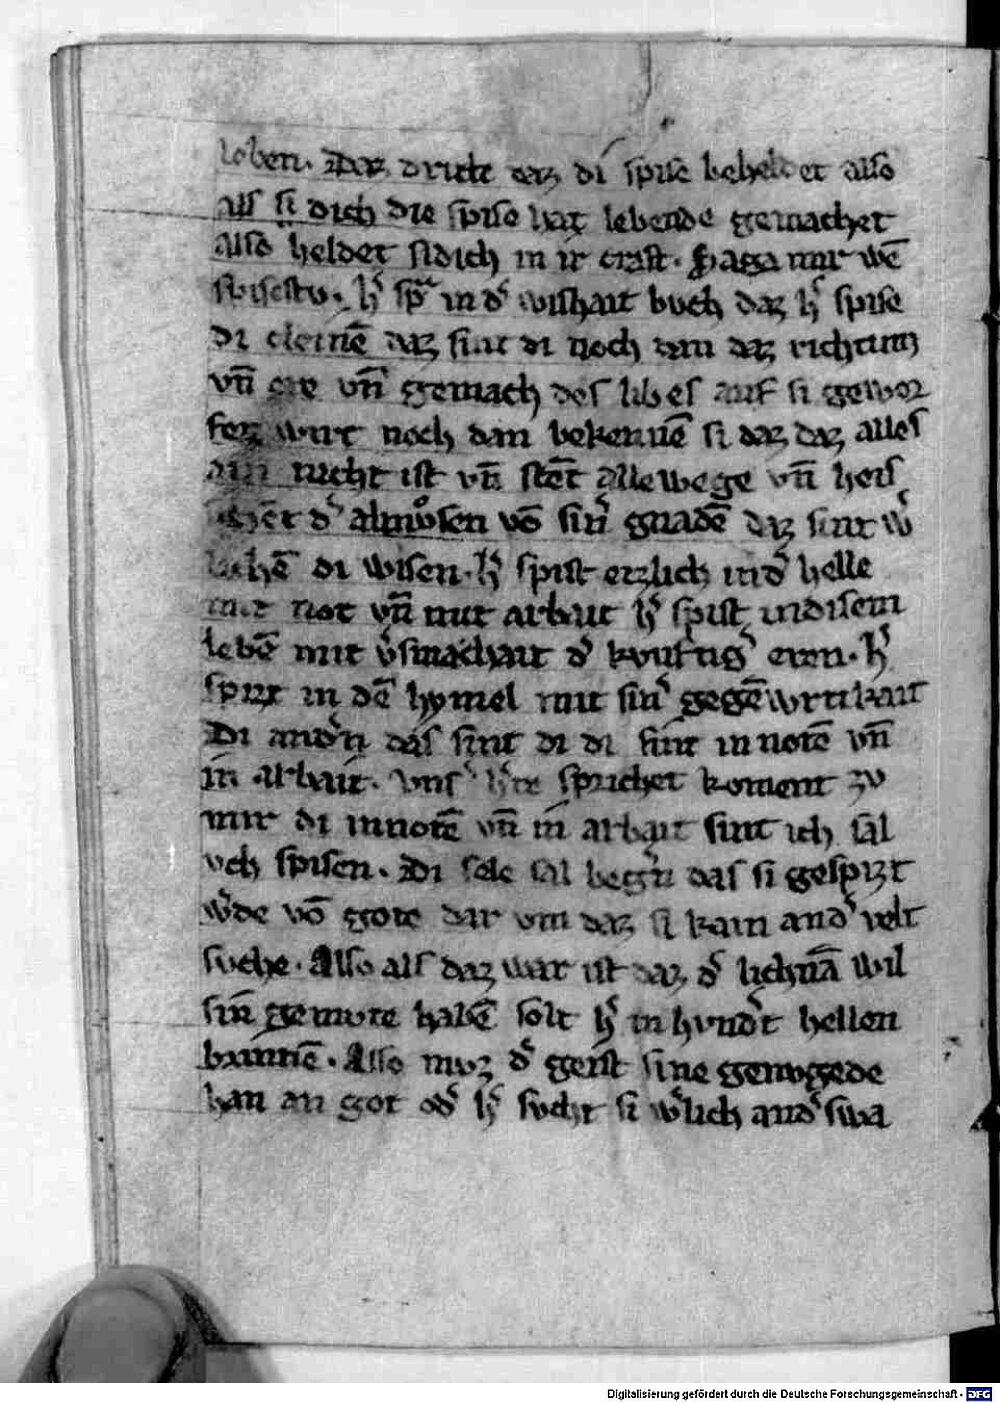 loben. Daz dritte daz di spise beheldet also
als si dich die spise hat lebende gemachet
also heldet si dich in ir craft. Fraga mir wē
spisestv. h͛ spͣ in d͛ wishait buch daz h͛ spise
di cleinē daz sint di noch dem daz richtum
vn̄ ere vn̄ gemach des libes auf si gewor
fen wirt noch dan bekennē si daz daz alles
ain nicht ist vn̄ stēt alle wege vn̄ heis
d͛ almůsen vō sin͛ gnadē daz sint w͛
di wisen. h͛ spist erzlich in d͛ helle
mit not vn̄ mit arbait h͛ spist in disem
lebē mit v͛smachait d͛ kvnftig͛ eren. h͛
spizt in dē hymel mit sin͛ gegēwrtikait
Di and͛n das sint di di sint in notē vn̄
in arbait. vns͛ h͛re sprichet koment zv
mir di in notē vn̄ in arbait sint ich sal
vch spisen. Di sele sal beg͛n das si gespizt
w͛de vō gote dar vm daz si kain and͛ velt
svche. Also als daz war ist daz d͛ lichnā wil
sin̄ gemvte habē solt h͛ in hvnd͛t hellen
brinnē. Also mvz d͛ geist sine genvgede
han an got od͛ h͛ svcht si w͛lich and͛swa
Digitalisierung gefördert durch die Deutsche Forschungsgemeinschaft - DFG